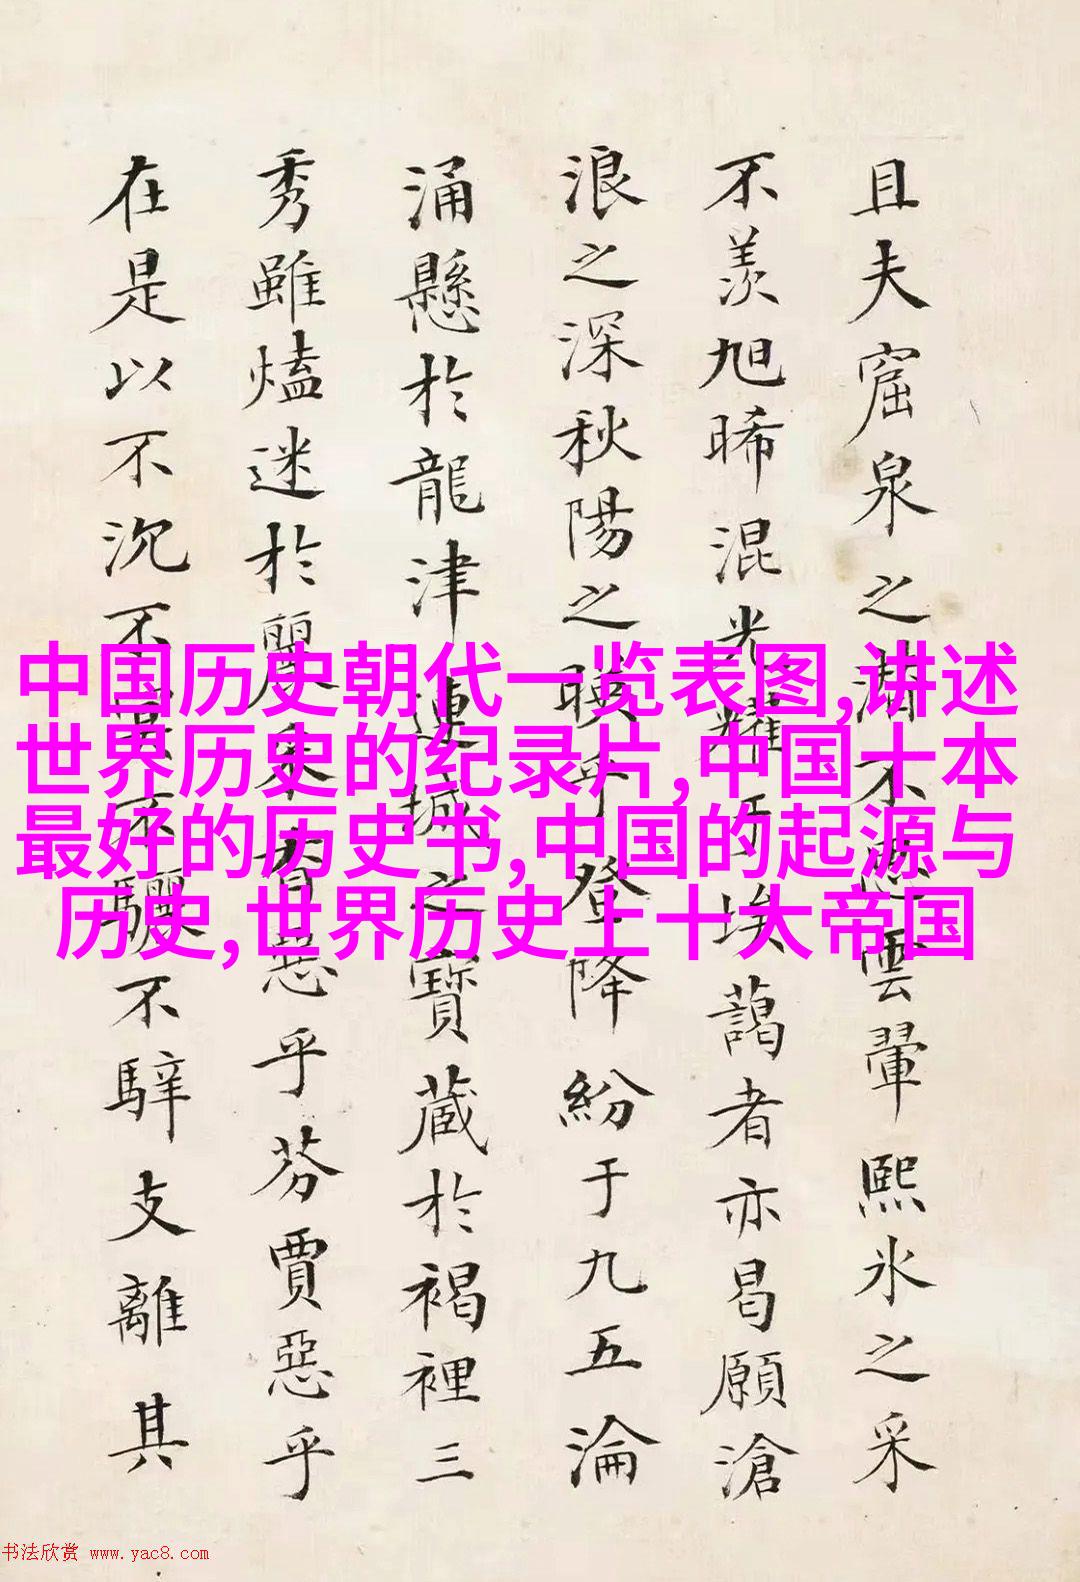 中国历史朝代一览表图,讲述
世界历史的纪录片,中国十本
最好的历史书,中国的起源与
历史,世界历史上十大帝国
且夫窟泉之潜不雲翬熙氷之采
不羨旭晞混光耀於埃藹者亦曷願滄
浪之深秋陽之暎乎登降紛于九五淪
涌懸於龍津連城之寶藏於褐裡三
秀雖熆迷於麗采智惡乎芬賈惡乎
在是以不沉不不驪不騂支離其
书法欣赏 www.yac8.com